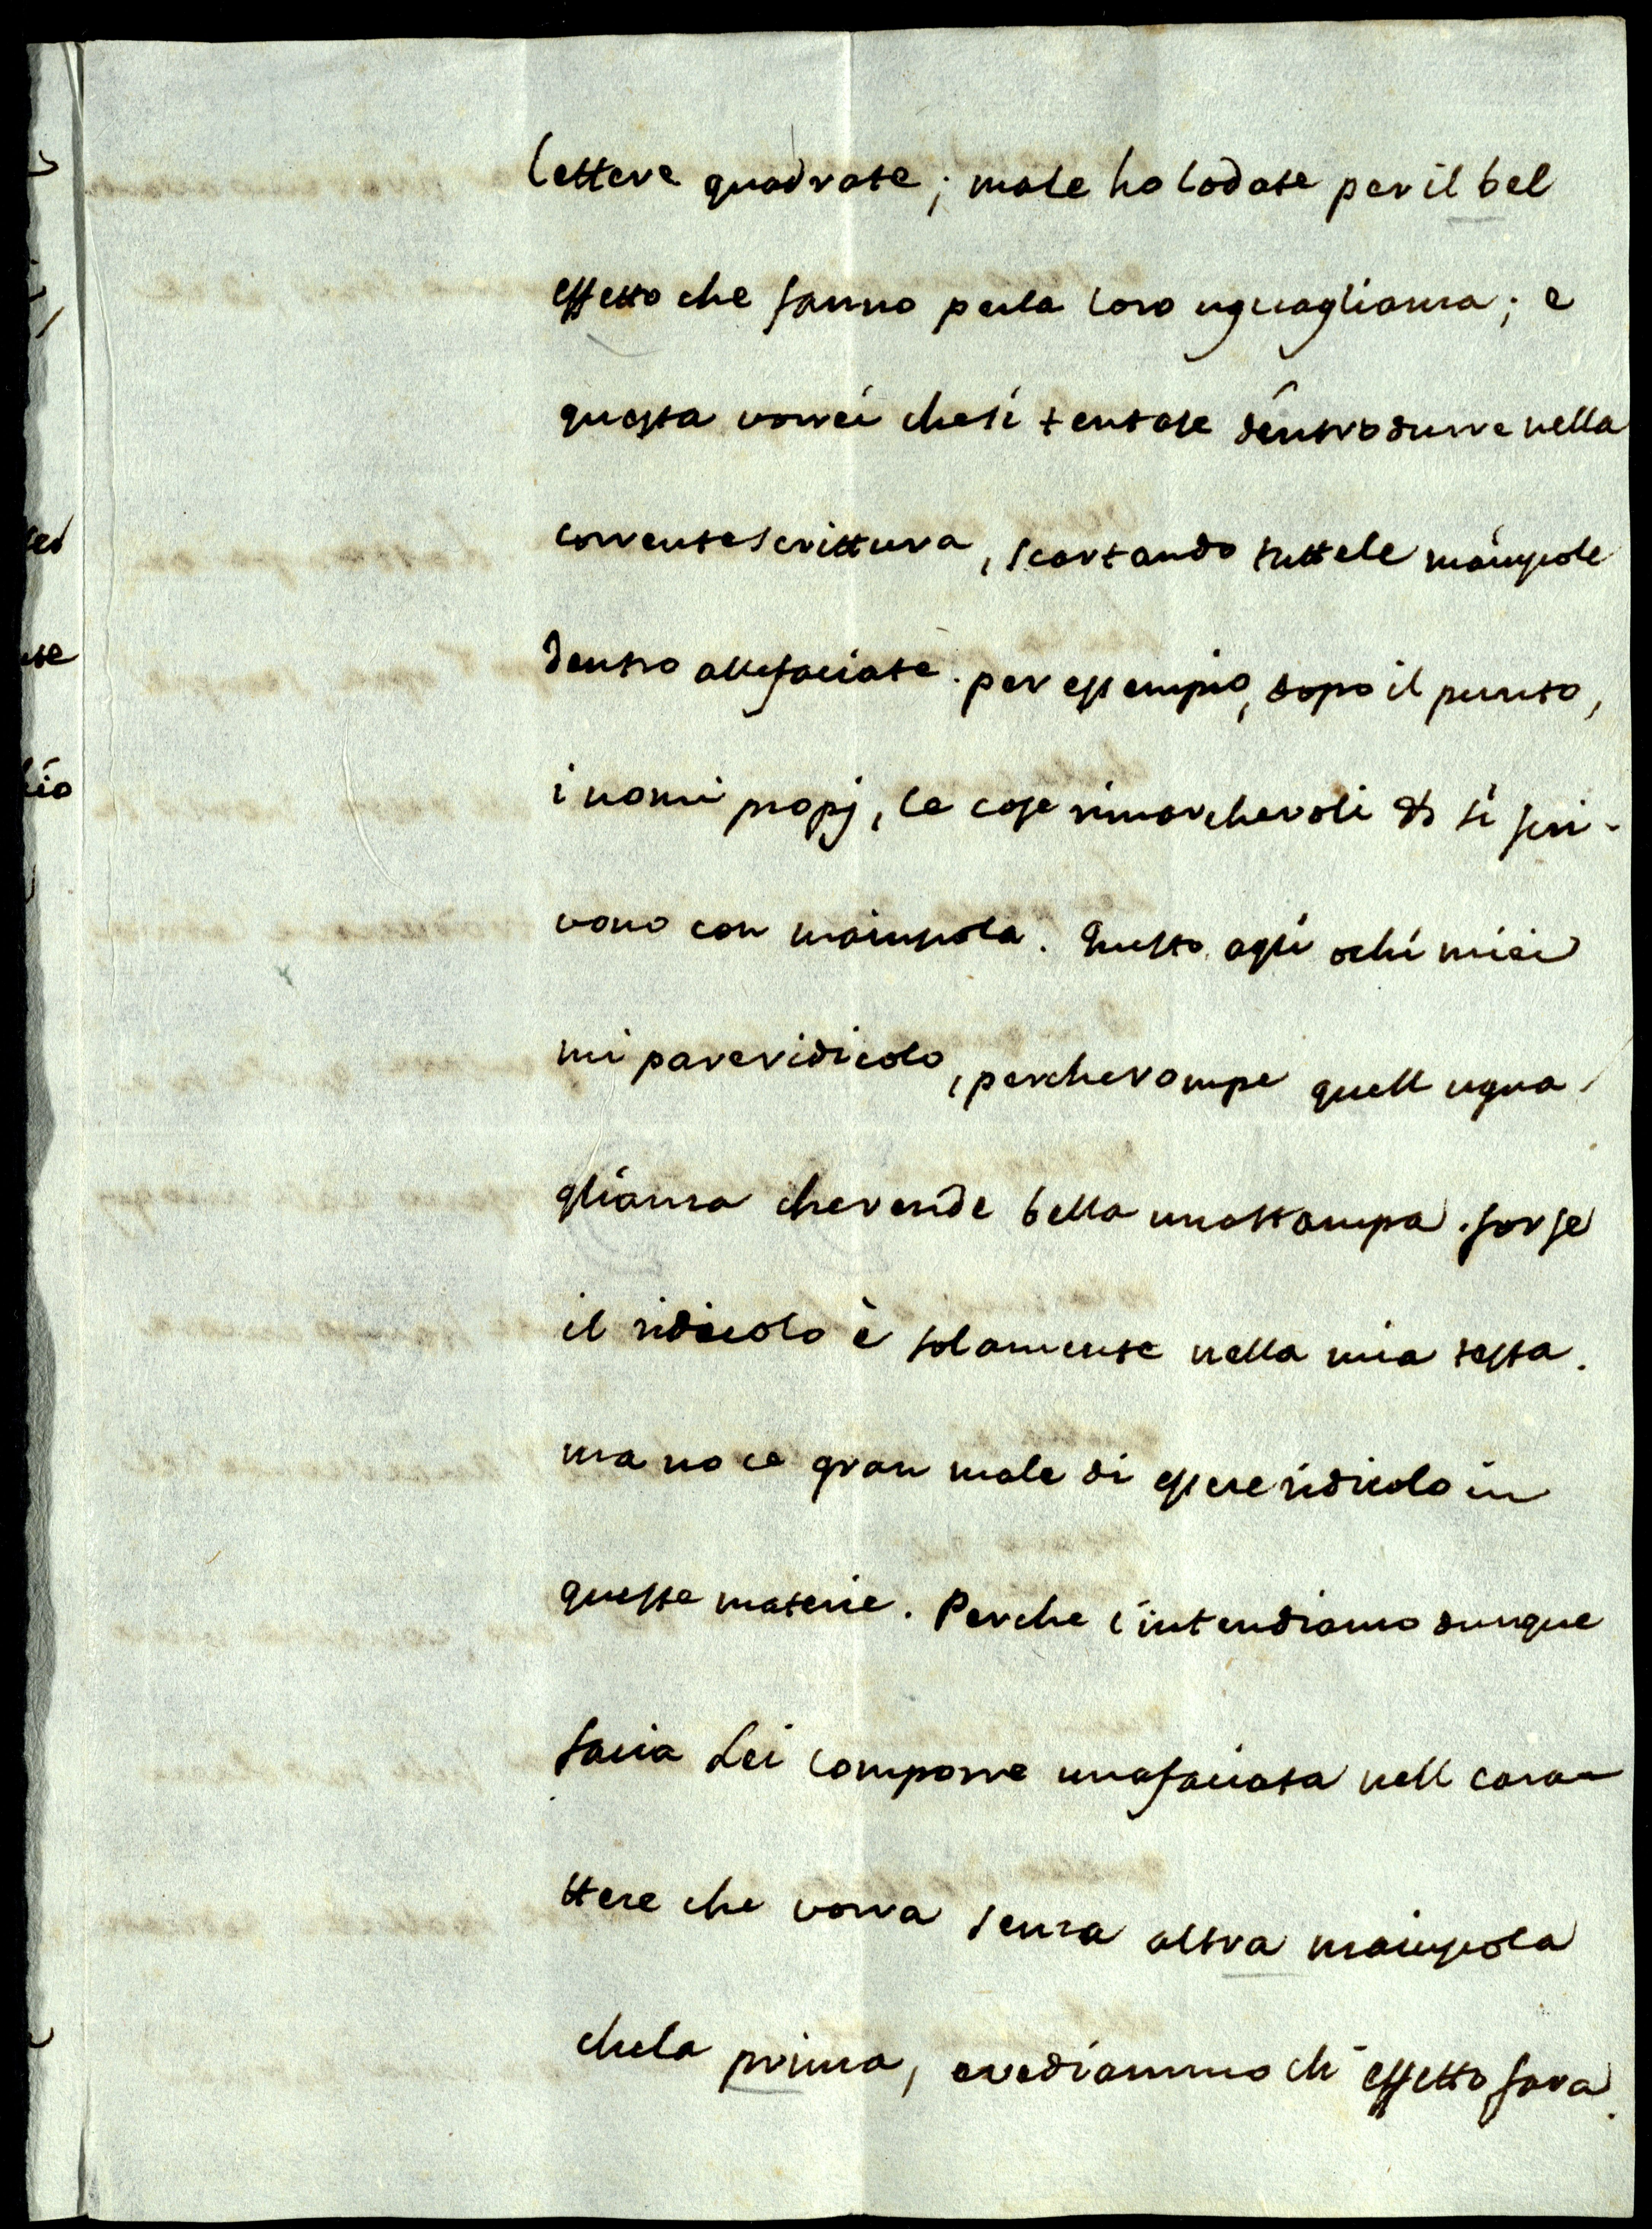 lettere quadrate; male ho lodate per il bel
effetto che fanno perla loro uguaglianza; e
questa vorrei chesi tentase d'introdurre nella
correntescrittura, scartando tuttele maiuspole
dentro allefaciate. per essempio, dopo il punto,
i nomi propj, le cose rimarchevoli &c si scri-
vono con maiuspola. Questo agli ochi miei
mi pareridicolo, percherompe quell ugua-
glianza cherende bella unastampa. forse
il ridicolo è solamente nella mia testa.
ma no ce gran male di essere ridicolo in
queste materie. Perche c'intendiamo dunque
facia Lei comporre unafaciata nell cara-
ttere che vorra senza altra maiuspola
chela prima, evediammo ch' effetto fara.